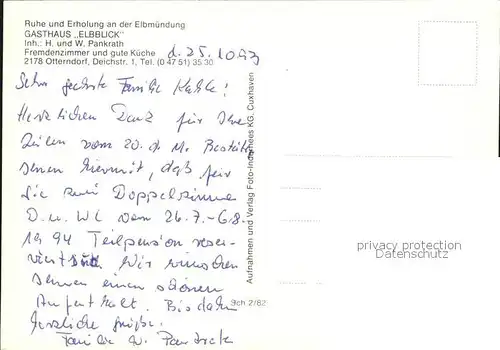 Ruhe und Erholung an der Elbmündung
GASTHAUS „ELBBLICK"
Inh.: H. und W. Pankrath
Fremdenzimmer und gute Küche
2178 Otterndorf, Deichstr. 1, Tel. (0 47 51) 35 30
d. 25. 10 93
Sehr geehrte Familie
Herzlichen Dank für Ihre
Zeilen vom 20. d. M. Bestäti
Ihnen hiermit, daß für
Sie zwei Doppelzimmer
D. u. WC vom 26.7.-6.8.
1994 Teilpension reser-
viert sind. Wir wünschen
Ihnen einen schönen
Aufenthalt. Bis dahin
herzliche Grüße.
Familie W. Pankrath
Aufnahmen und Verlag Foto-Industries KG. Cuxhaven
9ch 2/82
privacy protection
Datenschutz